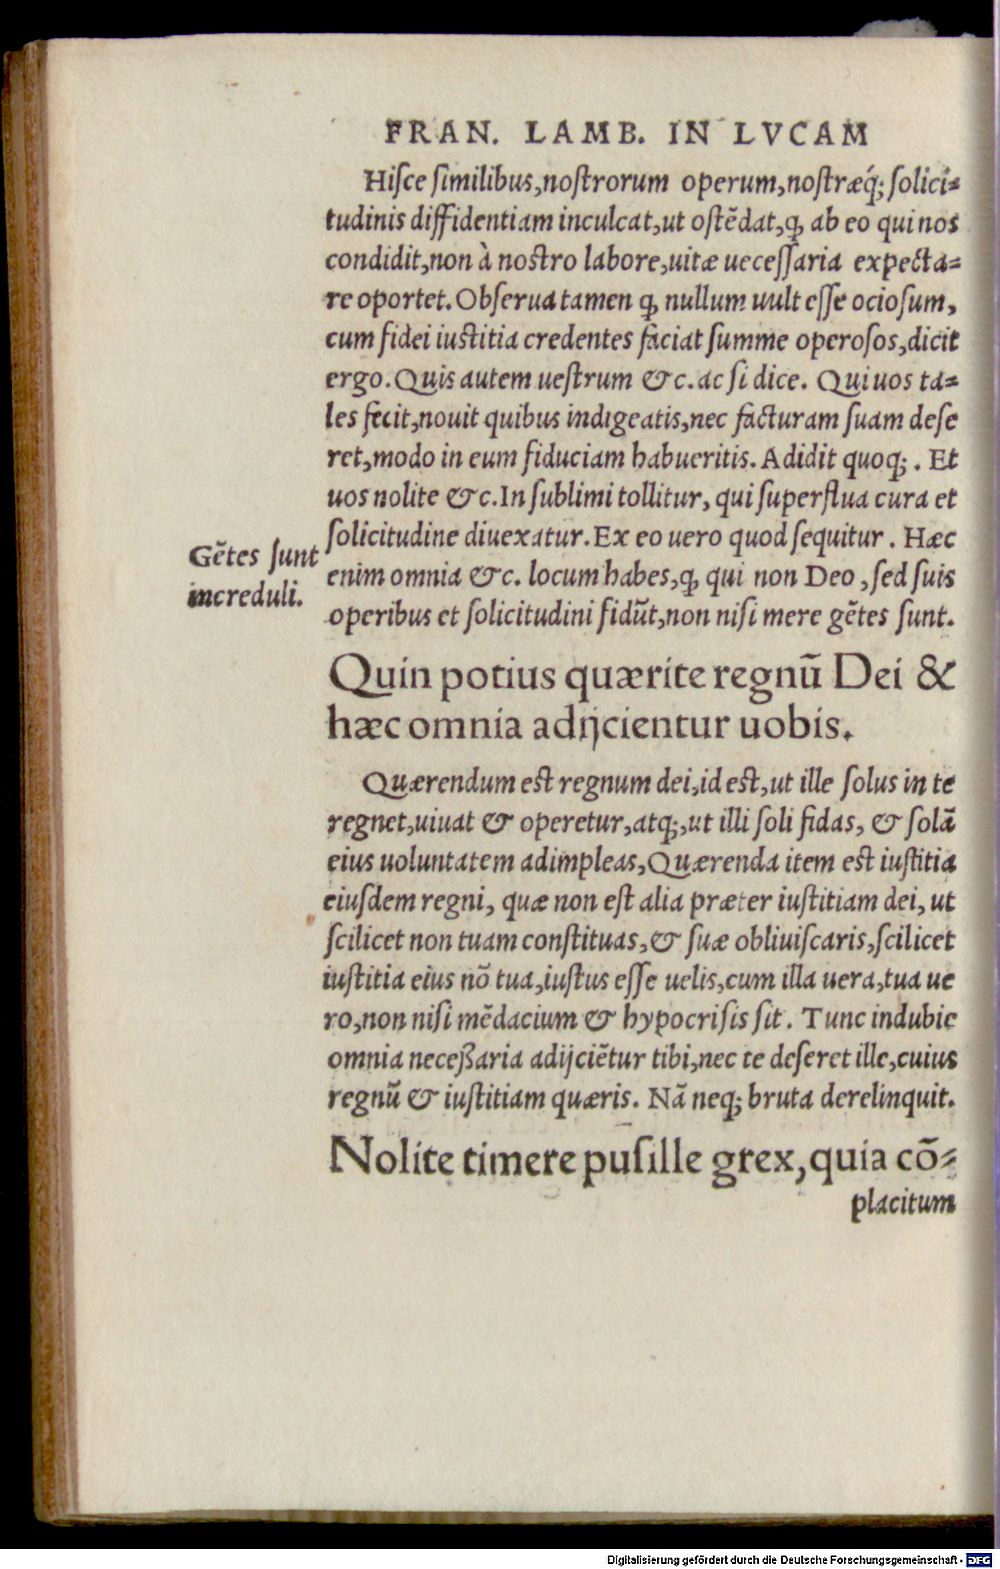 FRAN. LAMB. IN LVCAM
Hisce similibus,nostrorum operum,nostræq́; solici⸗
tudinis diffidentiam inculcat,ut ostẽdat,ꝙ ab eo qui nos
condidit,non à nostro labore,uitæ uecessaria expecta⸗
re oportet. Obserua tamen ꝙ nullum uult esse ociosum,
cum fidei iustitia credentes faciat summe operosos,dicit
ergo. Quis autem uestrum &c. ac si dice. Qui uos ta⸗
les fecit,nouit quibus indigeatis,nec facturam suam dese
ret,modo in eum fiduciam habueritis. Adidit quoq;. Et
uos nolite &c. In sublimi tollitur, qui superflua cura et
solicitudine diuexatur. Ex eo uero quod sequitur. Hæc
enim omnia &c. locum habes,ꝙ qui non Deo, sed suis
operibus et solicitudini fidũt,non nisi mere gẽtes sunt.
Gẽtes sunt
increduli.
Quin potius quærite regnũ Dei &
hæc omnia adijcientur uobis.
Quærendum est regnum dei,id est,ut ille solus in te
regnet,uiuat & operetur,atq;,ut illi soli fidas, & solã
eius uoluntatem adimpleas,Quærenda item est iustitia
eiusdem regni, quæ non est alia præter iustitiam dei, ut
scilicet non tuam constituas,& suæ obliuiscaris,scilicet
iustitia eius nõ tua,iustus esse uelis,cum illa uera,tua ue
ro,non nisi mẽdacium & hypocrisis sit. Tunc indubie
omnia neceßaria adijciẽtur tibi,nec te deseret ille,cuius
regnũ & iustitiam quæris. Nã neq; bruta derelinquit.
Nolite timere pusille grex,quia cõ⸗
placitum
Digitalisierung gefördert durch die Deutsche Forschungsgemeinschaft - DFG